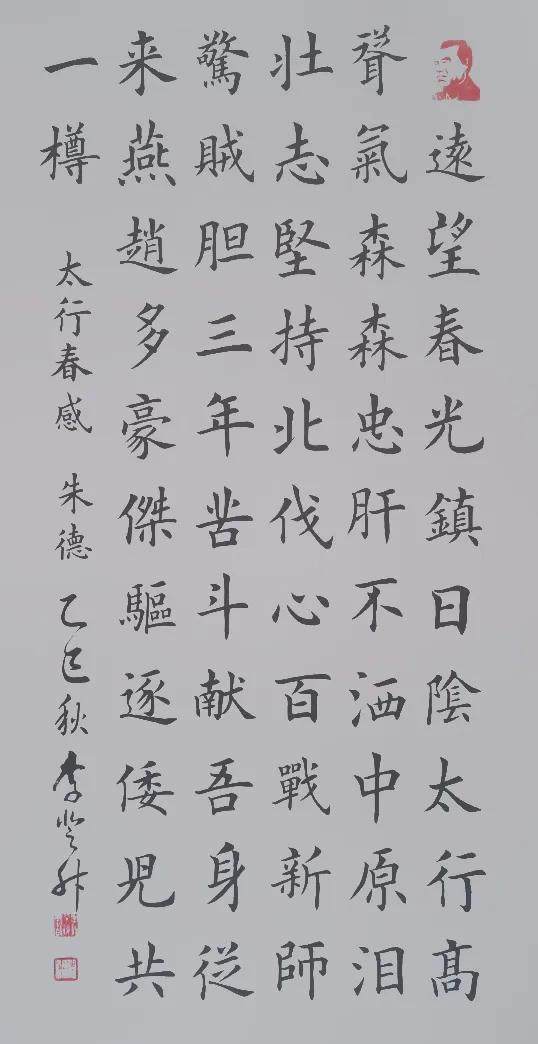 遠望春光鎮日陰太行髙
聳氣森森忠肝不洒中原泪
壮志堅持北伐心百戰新師
驚賊胆三年苦斗献吾身從
来燕趙多豪傑驅逐倭児共
一樽 太行春感 朱德 乙巳秋 李